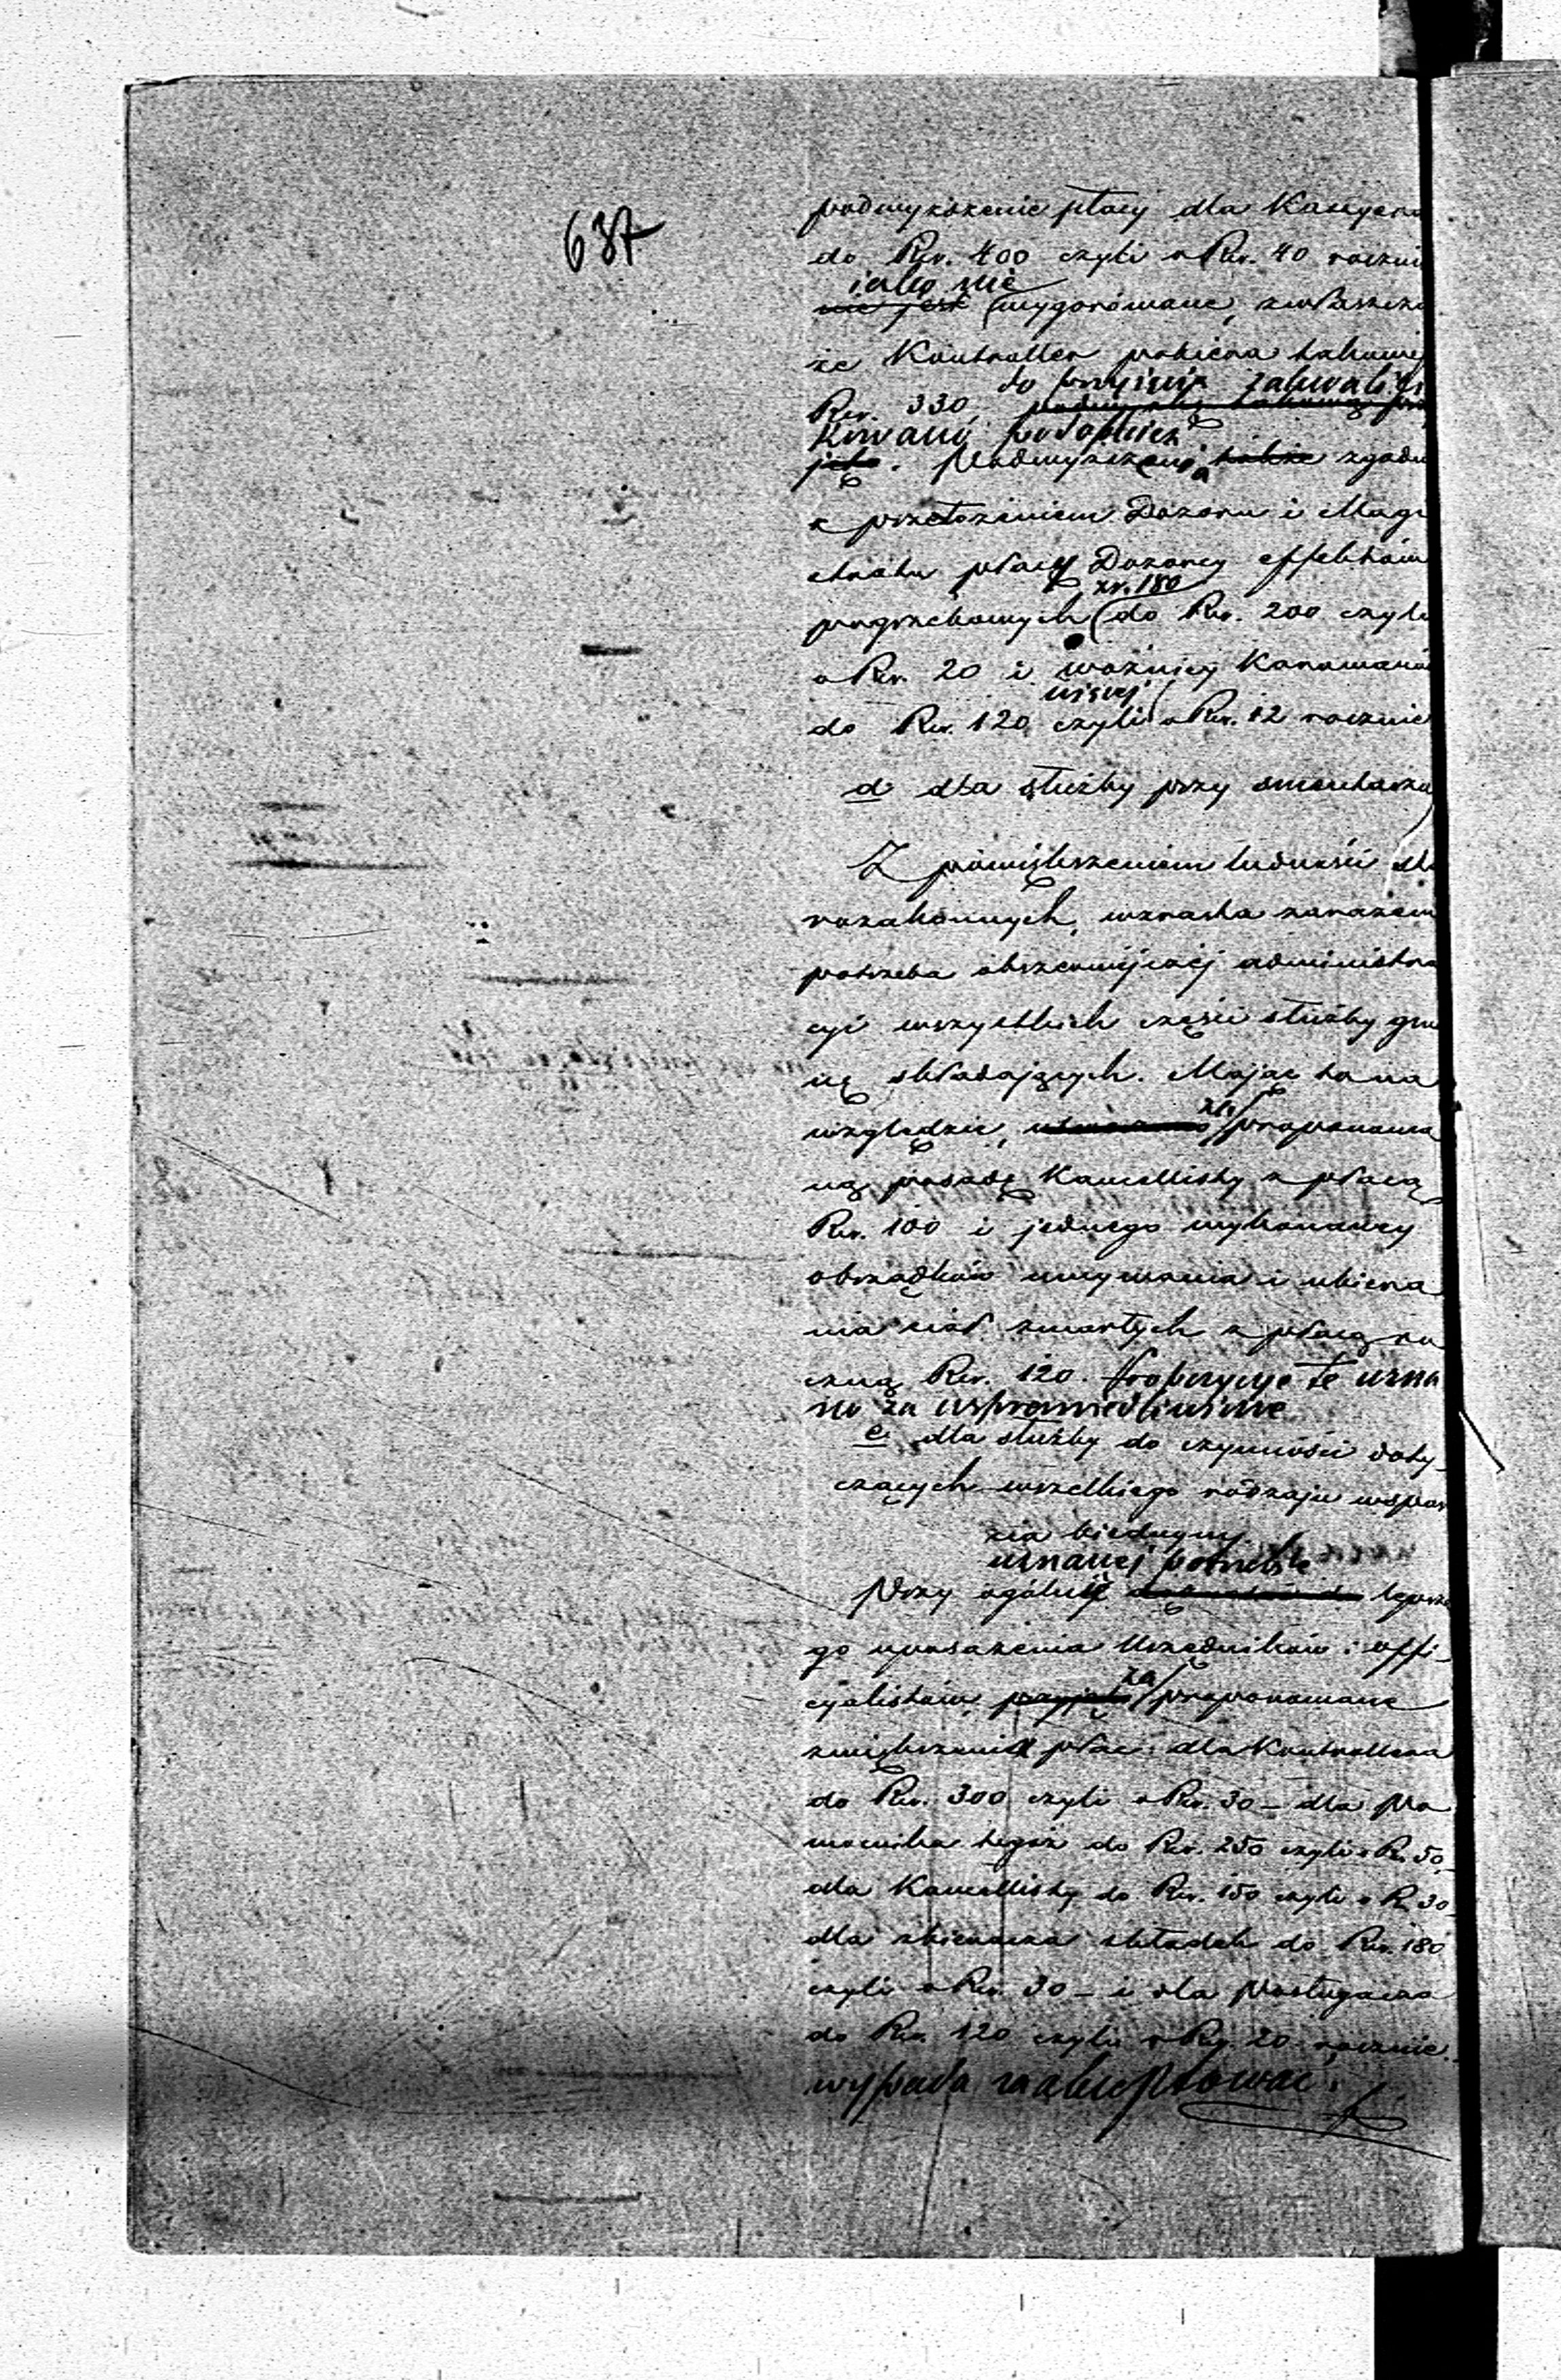 637
podwyższenie płacy dla Kassyera
do Rsr. 400 czyli o Rsr. 40 roczni
iako nie
nie jest wygórowane, zwłaszcza
że Kontroller pobiera takowej
do przyjęcia zakwalifi
Rsr. 330,
kowano podobnież
jęto. Podwyższenie także zgodn
z przełożeniem Dozoru i Magi
stratu płacy Dozorcy effektów
zr. 180
pogrzebowych do Rsr. 200 czyli
o Rsr. 20 i woźnicy Karawanów
więcej
do Rsr. 120 czyli o Rsr. 12 rocznie
d dla służby przy smentarzu
Z powiększeniem ludności sta
rozakonnych, wzrasta zarazem
potrzeba obszerniejszéj administra
cyi wszystkich części służby gmi
nę składających. Mając to na
za
względzie, proponowa
ną posadę Kancellisty z płacą
Rsr. 100 i jednego wykonawcy
obrządków umywania i ubiera
nia ciał zmarłych z płacą ro
czną Rsr. 120. Propozycye te uzna
no za usprawiedliwione
e dla służby do czynności doty-
czących wszelkiego rodzaju wspar
cia biednym
uznanej potrzebie
Przy ogólnej lepsze
go uposażenia Urzędników i offi-
za
cyalistów, przyjęto proponowane
zwiększenie płac: dla Kontrollera
do Rsr. 300 czyli o Rsr. 30 – dla Po
mocnika tegoż do Rsr. 250 czyli o Rs. 50
dla Kancellisty do Rsr. 150 czyli o R. 30
dla zbieracza składek do Rsr. 180
czyli o Rsr. 30 – i dla Posługacza
do Rsr. 120 czyli o Rs. 20 rocznie.
wypada zaakceptować.